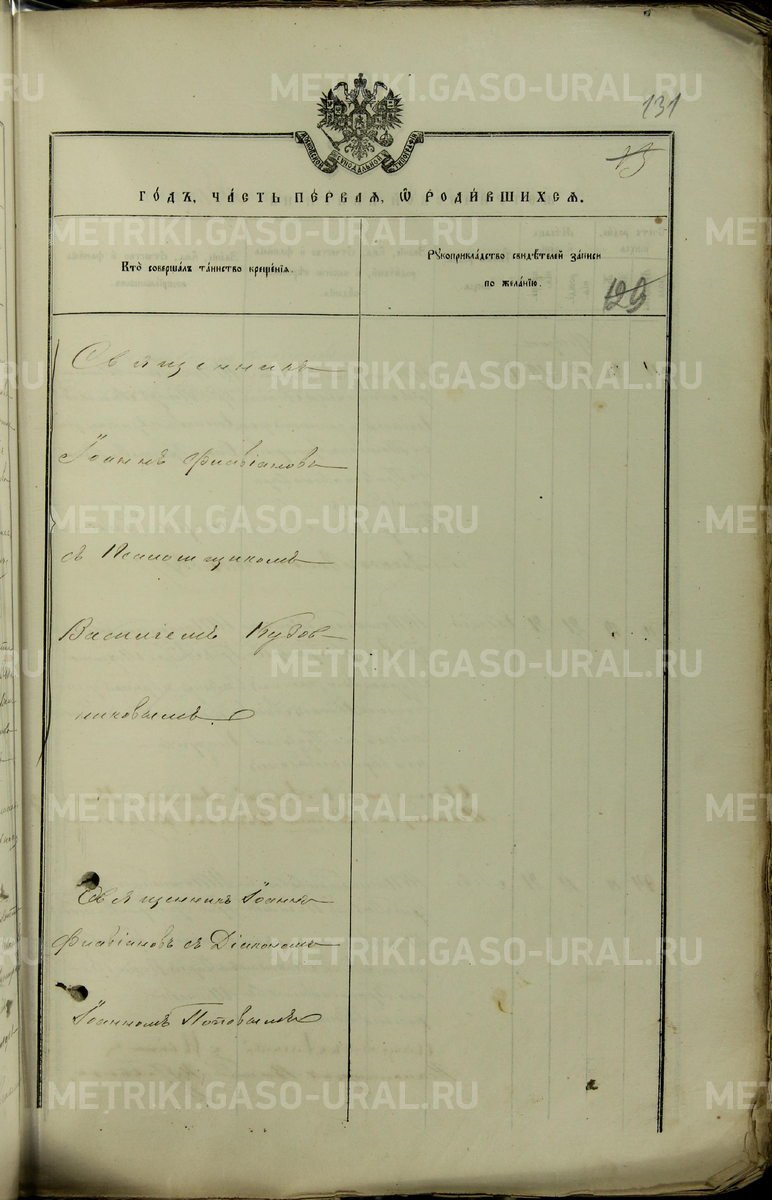 131
13
МОСКОВСКОЙ СѴНОДАЛЬНОЙ ТИПОГРАФІИ
ГО́ДЪ, ЧА́СТЬ ПЕ́РВАЯ, Ѡ РОДИ́ВШИХСЯ.
Кто̀ совершалъ та́инство креще́нїѧ.
Рꙋкоприкла́дство свидѣ́телей за́писи
по жела́нїю.
129
Священникъ
Іоаннъ Флавіановъ
съ Псаломщикомъ
Василіемъ Кудов-
никовымъ.
Священникъ Іоаннъ
Флавіановъ съ Діакономъ
Іоанномъ Поповымъ
METRIKI.GASO-URAL.RU